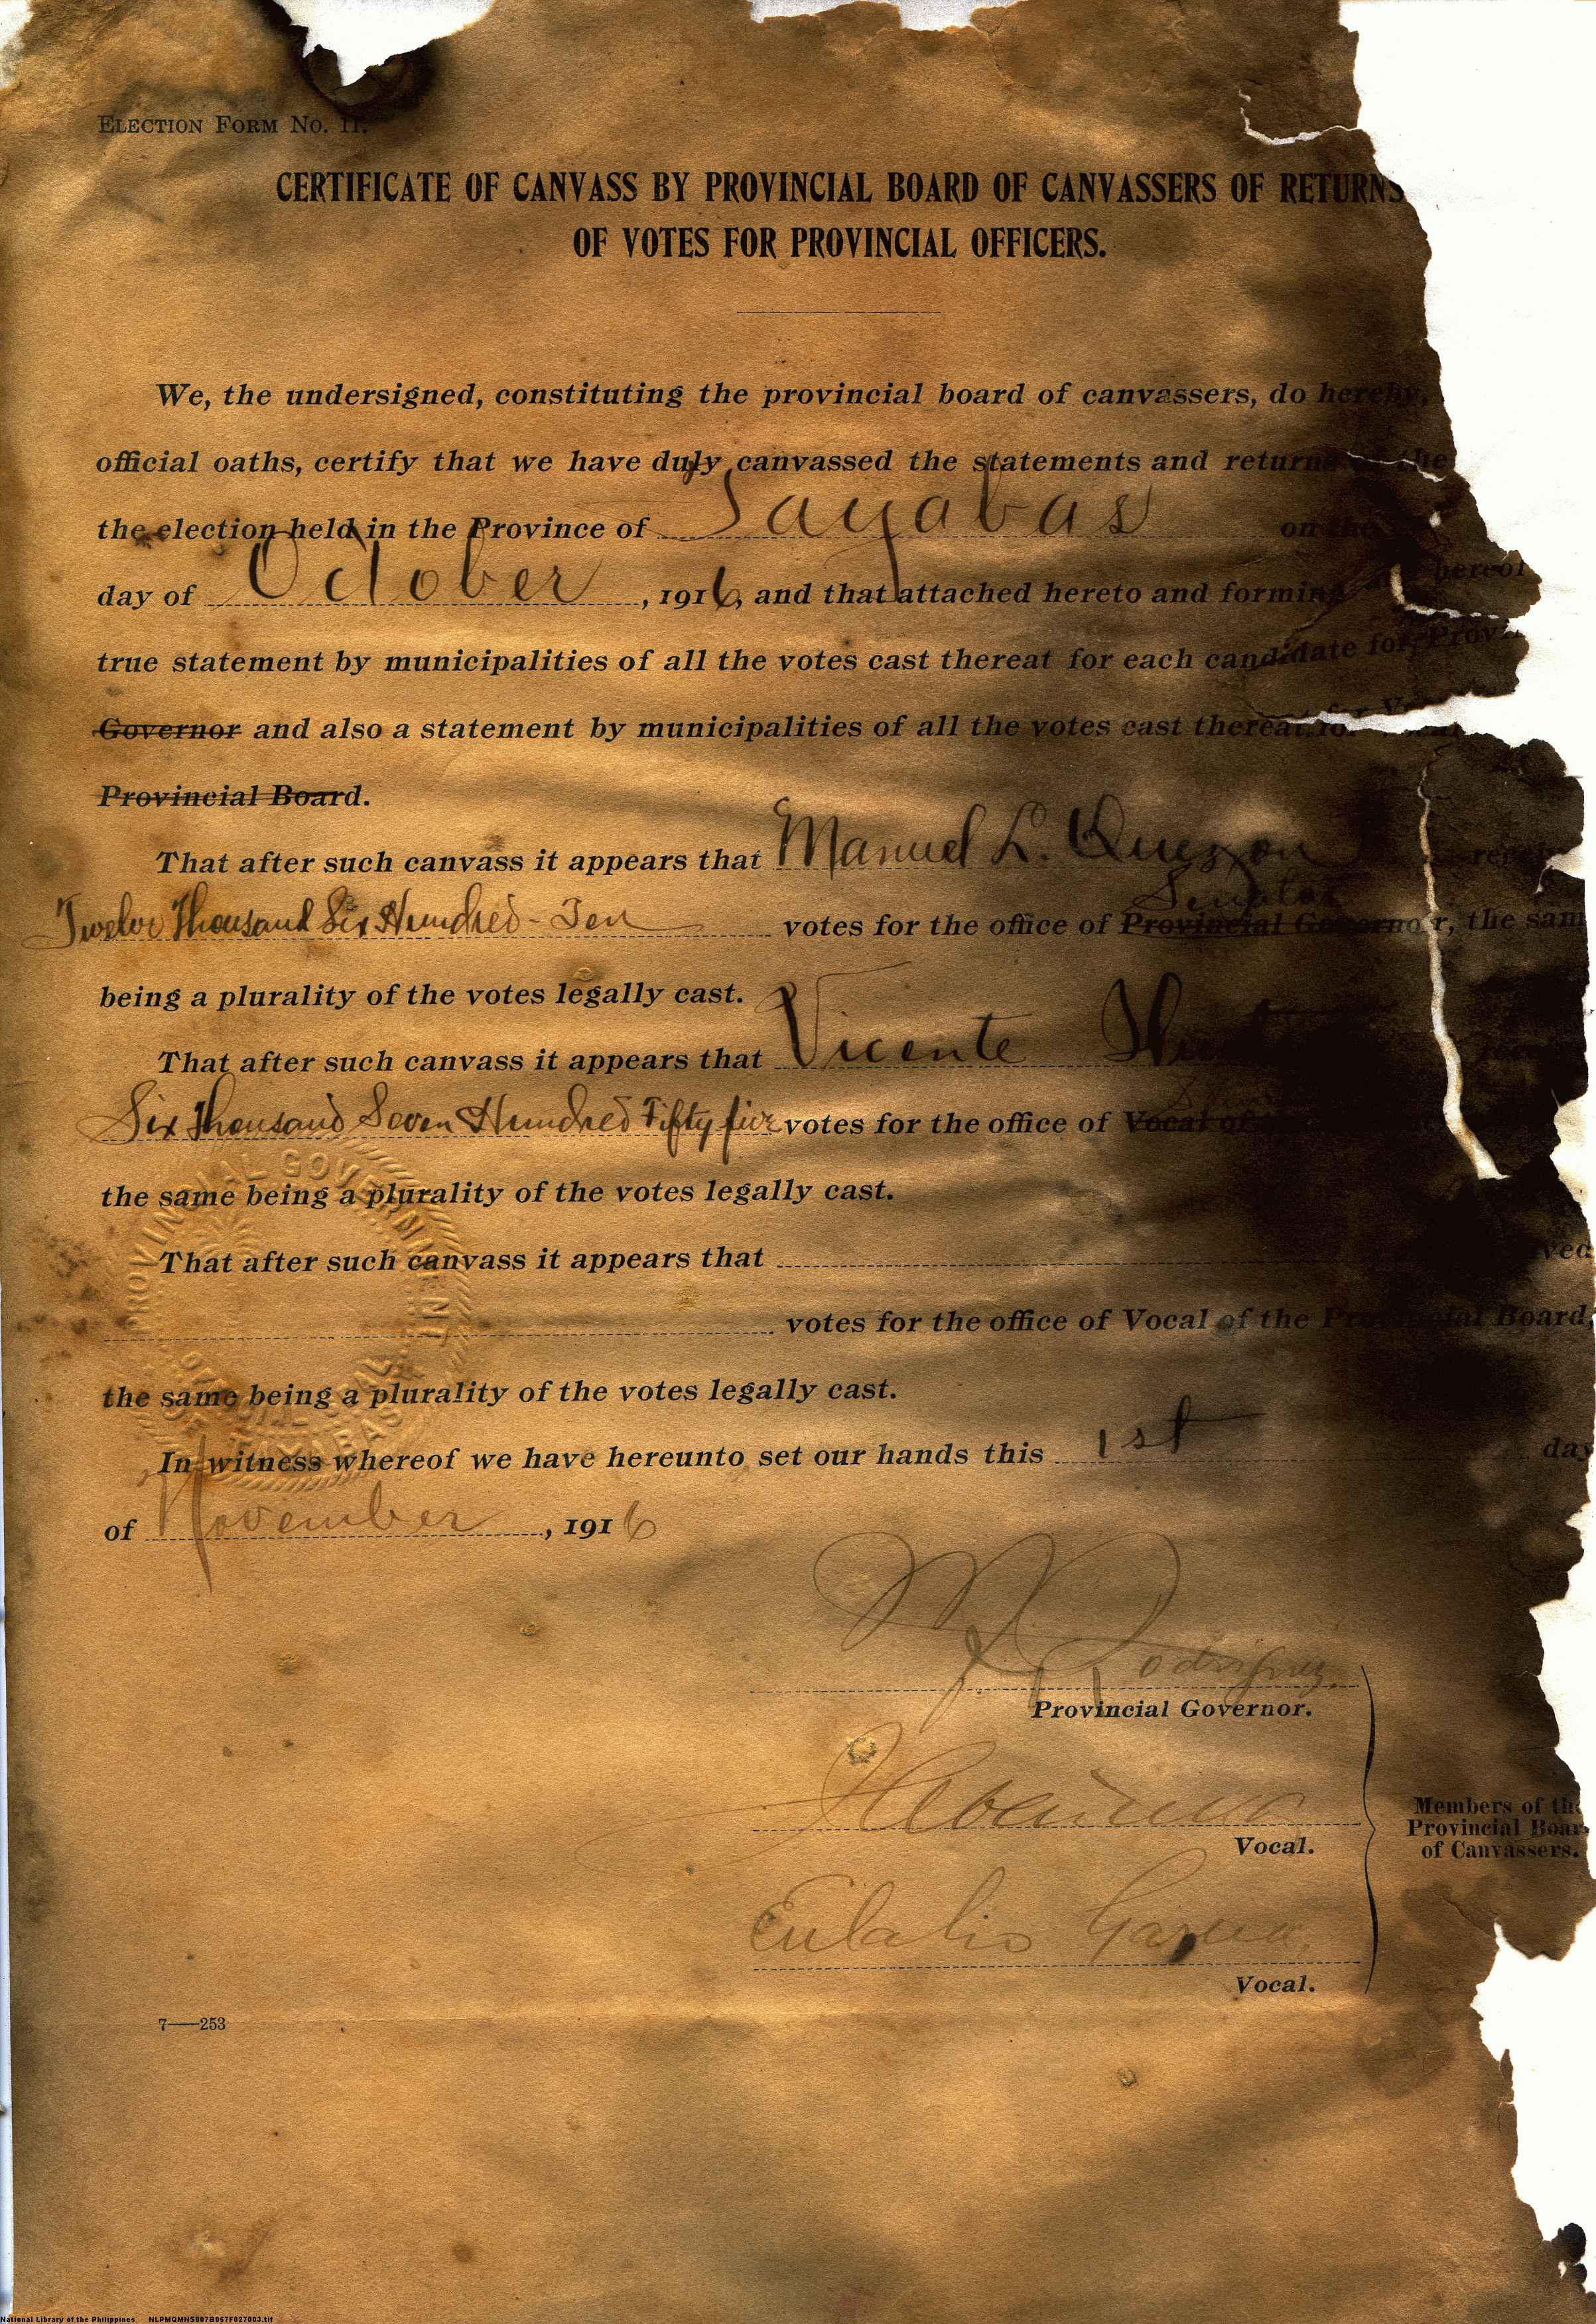 ELECTION FORM NO. 11.
CERTIFICATE OF CANVASS BY PROVINCIAL BOARD OF CANVASSERS OF RETURNS
OF VOTES FOR PROVINCIAL OFFICERS.
We, the undersigned, constituting the provincial board of canvassers, do hereby,
official oaths, certify that we have duly canvassed the statements and returns of the
the election held in the Province of Tayabas on the
day of October, 1916, and that attached hereto and forming hereof
true statement by municipalities of all the votes cast thereat for each candidate for
Governor and also a statement by municipalities of all the votes cast thereat for
Provincial Board.
That after such canvass it appears that Manuel L. Quezon
Senator
Twelve Thousand Six Hundred - Ten votes for the office of Provincial Governor, the same
being a plurality of the votes legally cast.
That after such canvass it appears that Vicente
Six Thousand Seven Hundred Fifty five votes for the office of Vocal of
the same being a plurality of the votes legally cast.
That after such canvass it appears that
votes for the office of Vocal of the Provincial Board,
the same being a plurality of the votes legally cast.
In witness whereof we have hereunto set our hands this 1st day
of November, 1916
M Rodriguez
Provincial Governor.
Vocal.
Members of the
Provincial Board
of Canvassers.
Eulalio Garcia
Vocal.
7—253
PROVINCIAL GOVERNMENT
National Library of the Philippines NLPMQMNS007B057F027003.tif